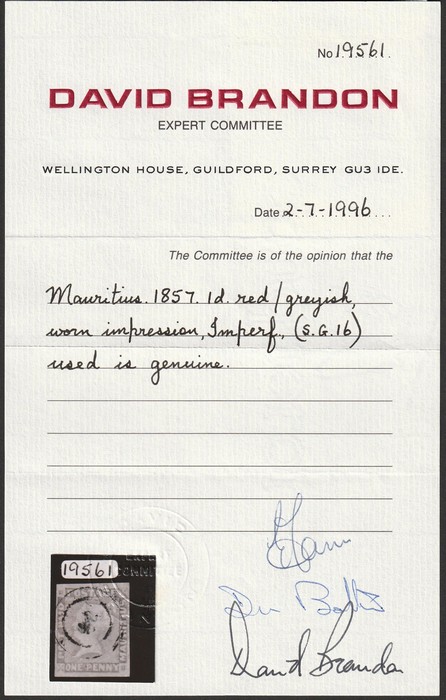 No 19561.
DAVID BRANDON
EXPERT COMMITTEE
WELLINGTON HOUSE, GUILDFORD, SURREY GU3 1DE.
Date 2-7-1996...
The Committee is of the opinion that the
Mauritius. 1857. 1d. red/greyish,
worn impression, Imperf., (S.G.16)
used is genuine.
EXPERT
COMMITTEE
19561
ONE PENNY
David Brandon